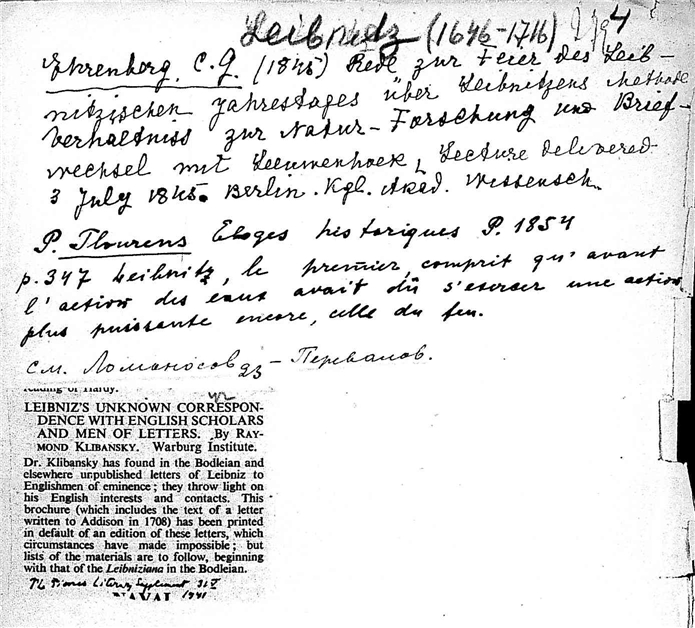 Leibnitz (1646-1716)
4
Ehrenberg, C.G. (1845) Rede zur Feier des Leib-
nitzischen Jahrestages über Leibnitzens Methode
Verhaltniss zur Natur-Forschung und Brief-
wechsel mit Leeuwenhoek, Lecture delivered
3 July 1845. Berlin. Kgl. Akad. Wissensch.
P. Flourens Eloges historiques P. 1854
p.347 Leibnitz, le premier, comprit qu'avant
l'action des eaux avait dû s'exercer une action
plus puissante encore, celle du feu.
См. Ломаносов - Перевалов.
reading of Hardy.
LEIBNIZ'S UNKNOWN CORRESPON-
DENCE WITH ENGLISH SCHOLARS
AND MEN OF LETTERS. By RAY-
MOND KLIBANSKY. Warburg Institute.
Dr. Klibansky has found in the Bodleian and
elsewhere unpublished letters of Leibniz to
Englishmen of eminence; they throw light on
his English interests and contacts. This
brochure (which includes the text of a letter
written to Addison in 1708) has been printed
in default of an edition of these letters, which
circumstances have made impossible; but
lists of the materials are to follow, beginning
with that of the Leibniziana in the Bodleian.
The Times Literary Supplement 31 V
1941